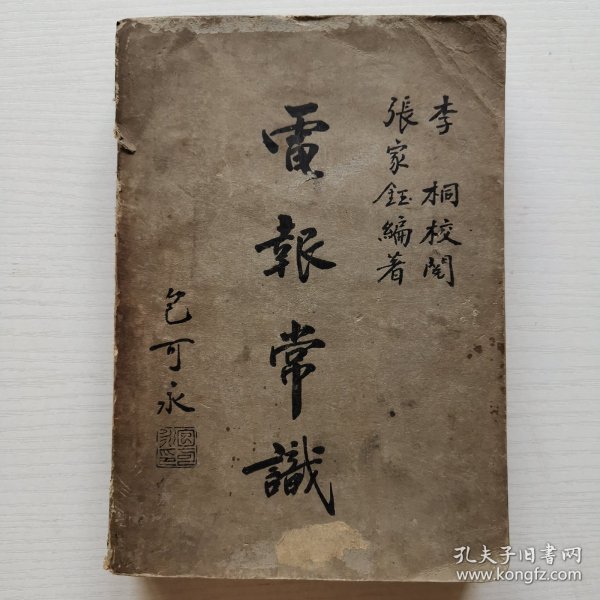 李桐校閱
張家鈺編著
電報常識
包可永
孔夫子旧书网
www.kongfz.com